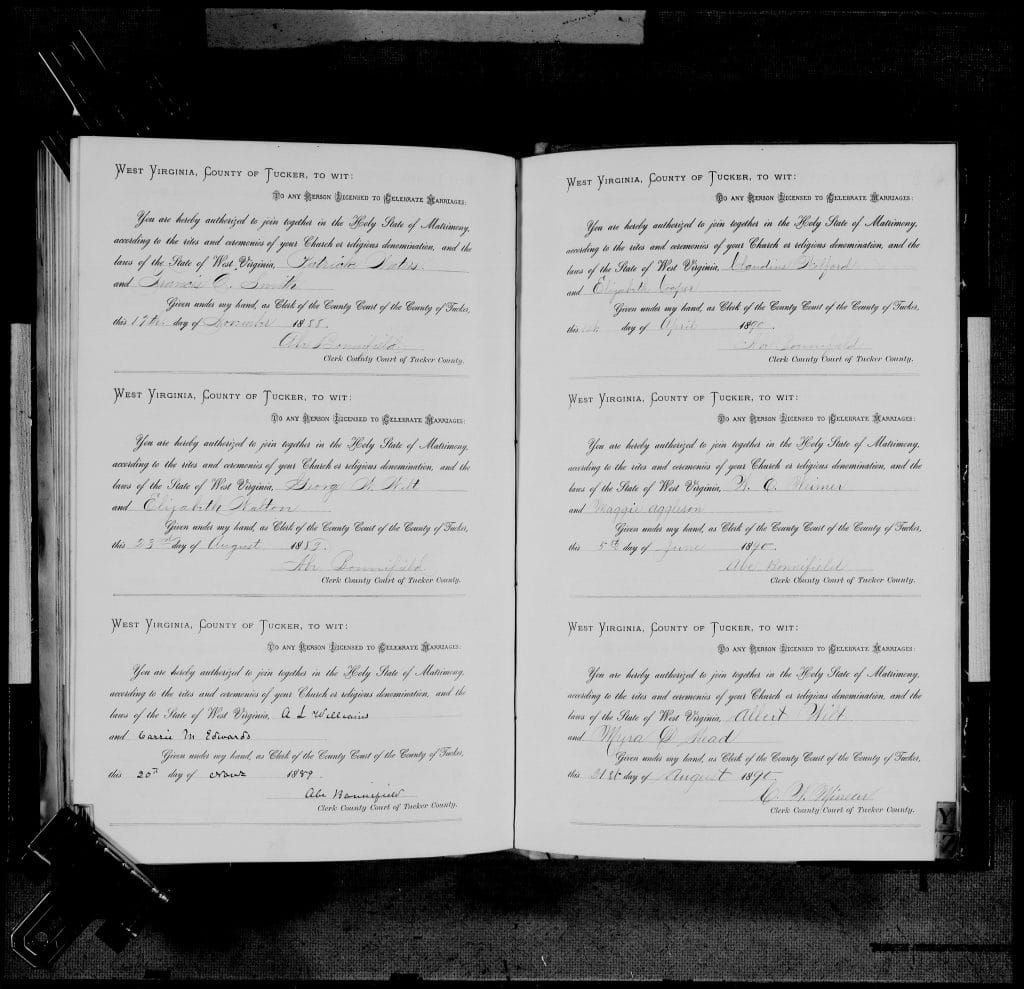 WEST VIRGINIA, COUNTY OF TUCKER, TO WIT:
TO ANY PERSON LICENSED TO CELEBRATE MARRIAGES:
You are hereby authorized to join together in the Holy State of Matrimony,
according to the rites and ceremonies of your Church or religious denomination, and the
laws of the State of West Virginia, Patrick
and Francis C. Smith
Given under my hand, as Clerk of the County Court of the County of Tucker,
this 17th day of November 1888.
Abe Bonnifield
Clerk County Court of Tucker County.
WEST VIRGINIA, COUNTY OF TUCKER, TO WIT:
TO ANY PERSON LICENSED TO CELEBRATE MARRIAGES:
You are hereby authorized to join together in the Holy State of Matrimony,
according to the rites and ceremonies of your Church or religious denomination, and the
laws of the State of West Virginia, George W. Wilt
and Elizabeth Walton
Given under my hand, as Clerk of the County Court of the County of Tucker,
this 23rd day of August
Abe Bonnifield
Clerk County Court of Tucker County.
WEST VIRGINIA, COUNTY OF TUCKER, TO WIT:
TO ANY PERSON LICENSED TO CELEBRATE MARRIAGES:
You are hereby authorized to join together in the Holy State of Matrimony,
according to the rites and ceremonies of your Church or religious denomination, and the
laws of the State of West Virginia, A L Williams
and Carrie M Edwards
Given under my hand, as Clerk of the County Court of the County of Tucker,
this 20th day of 1889.
Abe Bonnifield
Clerk County Court of Tucker County.
WEST VIRGINIA, COUNTY OF TUCKER, TO WIT:
TO ANY PERSON LICENSED TO CELEBRATE MARRIAGES:
You are hereby authorized to join together in the Holy State of Matrimony,
according to the rites and ceremonies of your Church or religious denomination, and the
laws of the State of West Virginia,
and Elizabeth Cooper
Given under my hand, as Clerk of the County Court of the County of Tucker,
this day of April 1890.
Abe Bonnifield
Clerk County Court of Tucker County.
WEST VIRGINIA, COUNTY OF TUCKER, TO WIT:
TO ANY PERSON LICENSED TO CELEBRATE MARRIAGES:
You are hereby authorized to join together in the Holy State of Matrimony,
according to the rites and ceremonies of your Church or religious denomination, and the
laws of the State of West Virginia, W. C. Weimer
and Maggie
Given under my hand, as Clerk of the County Court of the County of Tucker,
this 5th day of June 1890.
Abe Bonnifield
Clerk County Court of Tucker County.
WEST VIRGINIA, COUNTY OF TUCKER, TO WIT:
TO ANY PERSON LICENSED TO CELEBRATE MARRIAGES:
You are hereby authorized to join together in the Holy State of Matrimony,
according to the rites and ceremonies of your Church or religious denomination, and the
laws of the State of West Virginia, Albert Wilt
and Myra D Mead
Given under my hand, as Clerk of the County Court of the County of Tucker,
this 21st day of August 1890.
C. W. Minear
Clerk County Court of Tucker County.
Y
Z